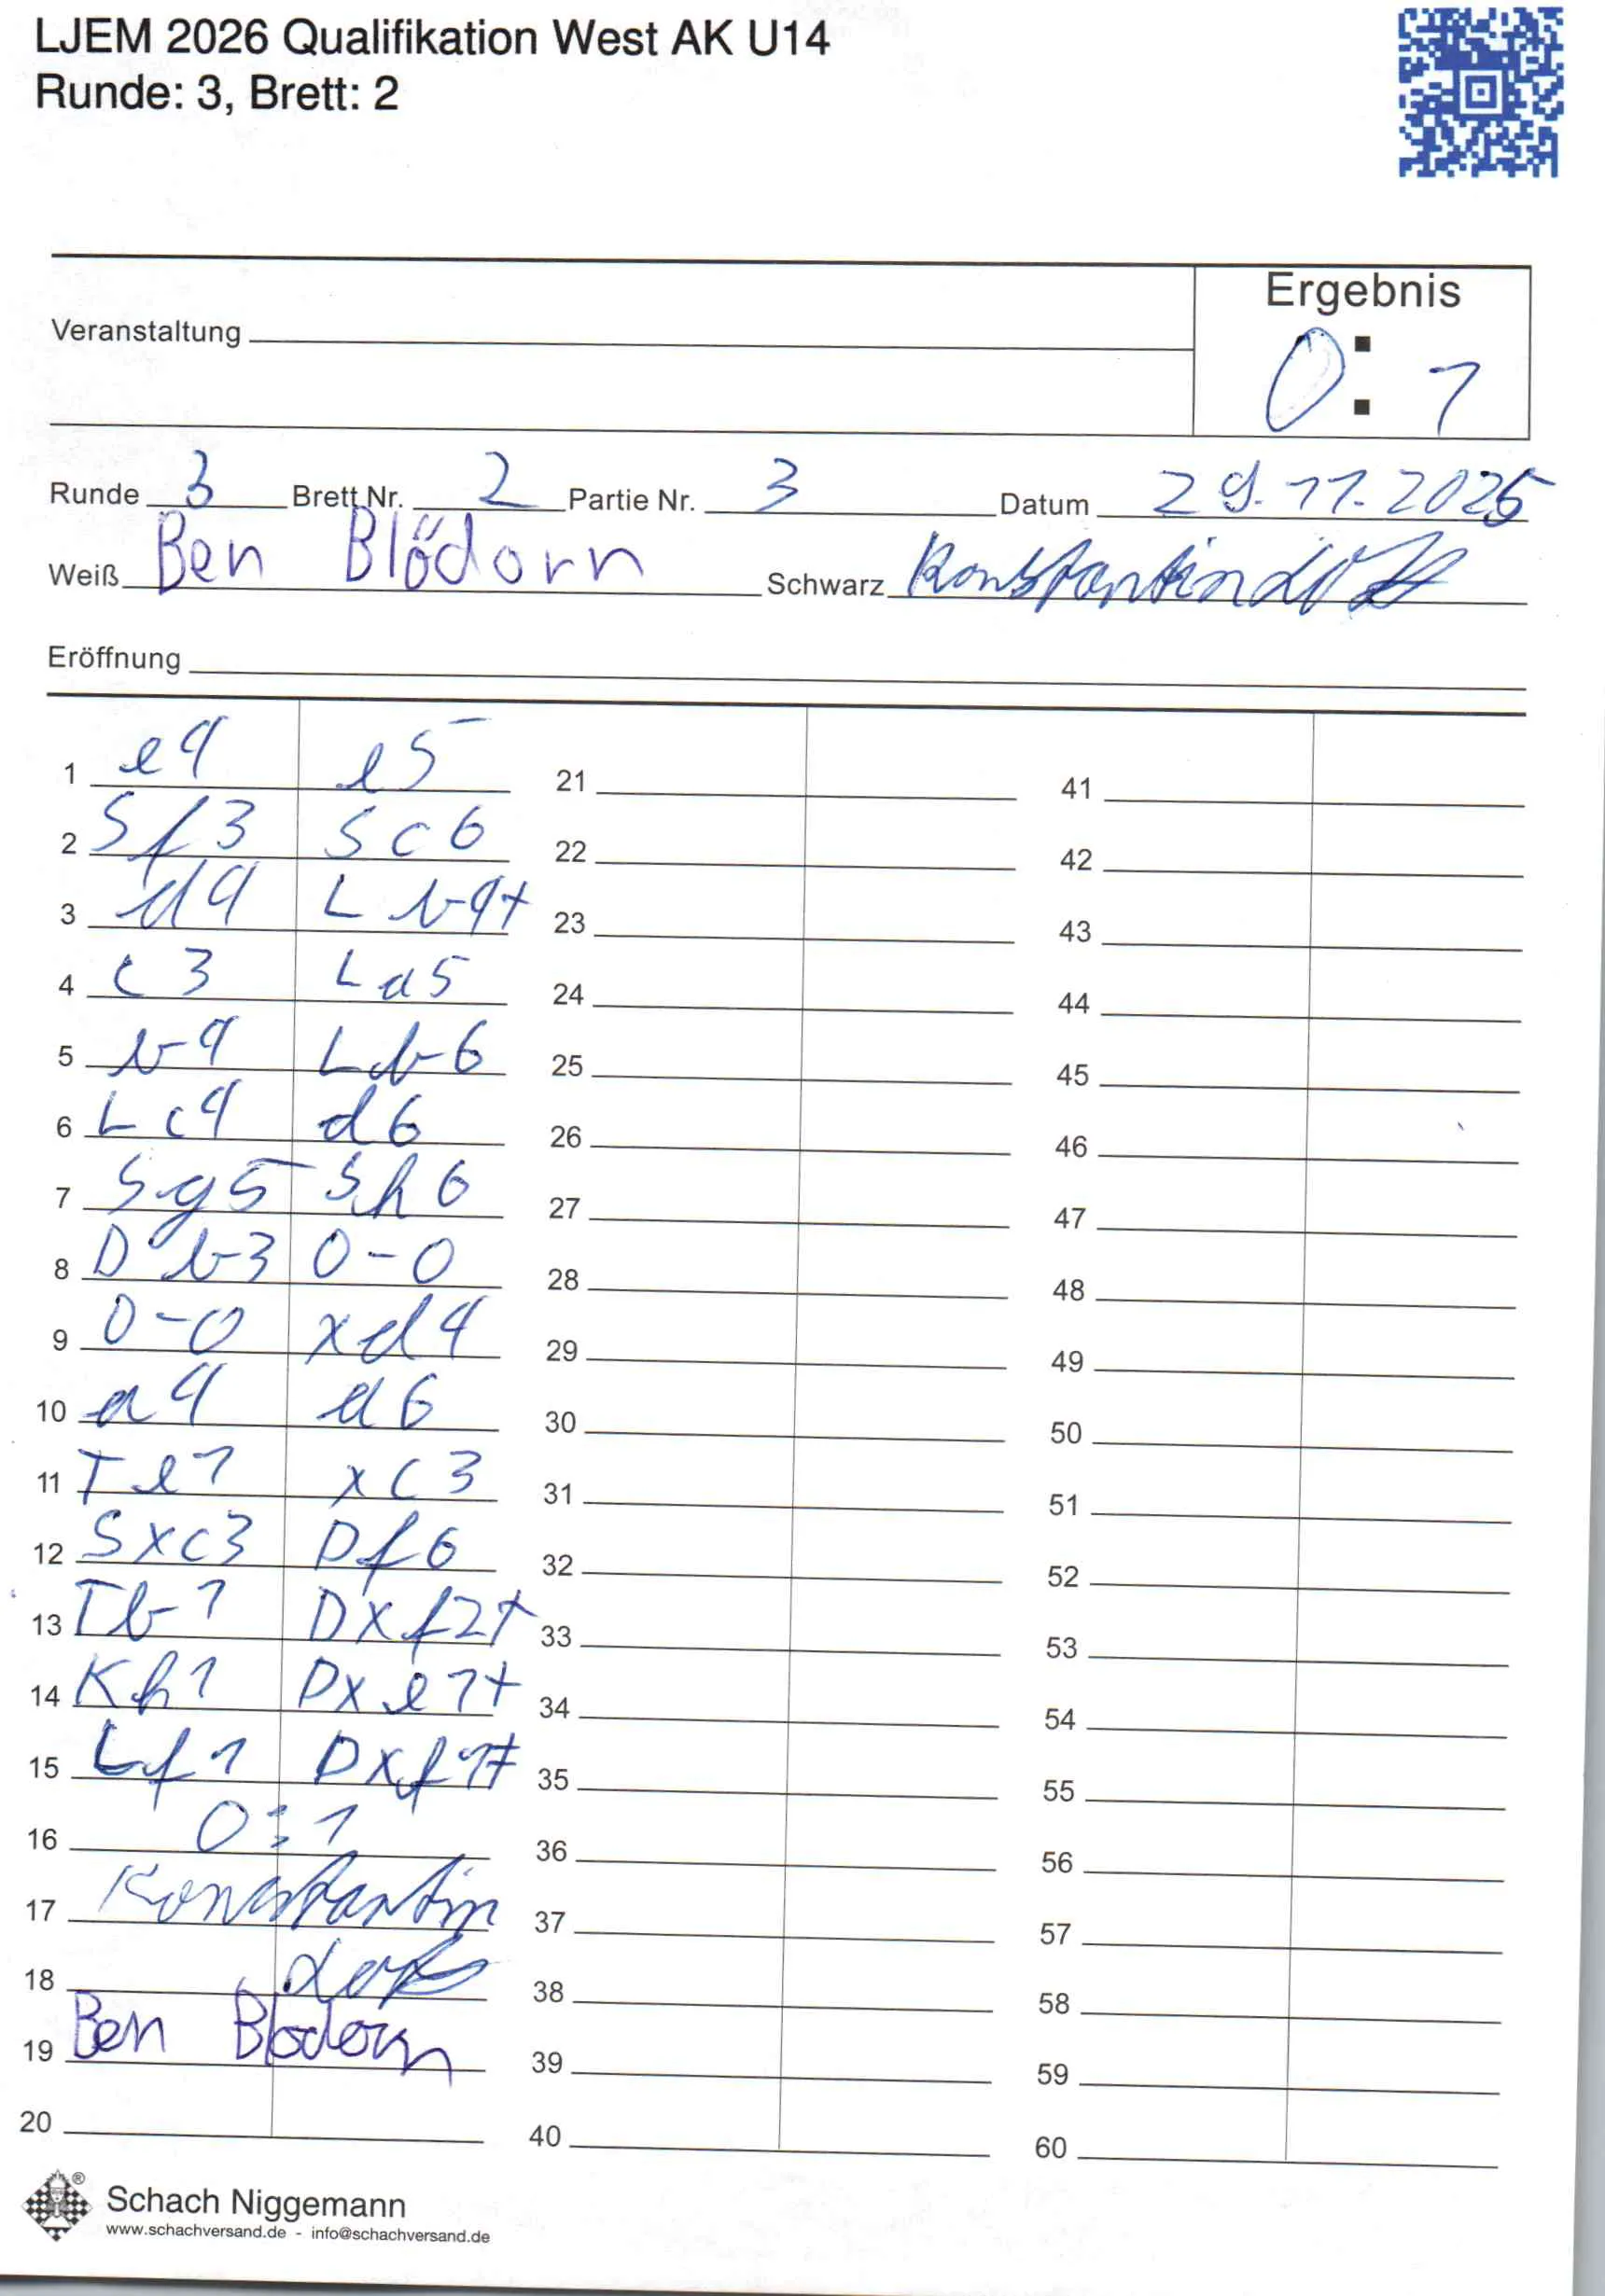 LJEM 2026 Qualifikation West AK U14
Runde: 3, Brett: 2
Ergebnis
Veranstaltung
0 : 1
Runde 3 Brett Nr. 2 Partie Nr. 3 Datum 29.11.2025
Weiß Ben Blödorn Schwarz Konstantin
Eröffnung
1 e4 e5 21 41
2 Sf3 Sc6 22 42
3 d4 Lb4+ 23 43
4 c3 La5 24 44
5 b4 Lb6 25 45
6 Lc4 d6 26 46
7 Sg5 Sh6 27 47
8 Db3 0-0 28 48
9 0-0 xd4 29 49
10 a4 a6 30 50
11 Te1 xc3 31 51
12 Sxc3 Df6 32 52
13 Tb1 Dxf2+ 33 53
14 Kh1 Dxe1+ 34 54
15 Lf1 Dxf1# 35 55
16 0:1 36 56
17 Konstantin 37 57
18 38 58
19 Ben Blödorn 39 59
20 40 60
Schach Niggemann
www.schachversand.de - info@schachversand.de